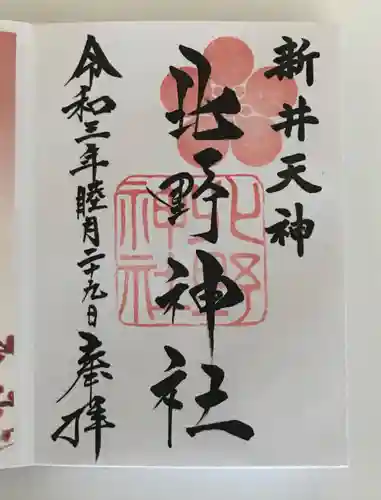 新井天神
北野神社
北野神社
令和三年睦月二十九日 奉拝